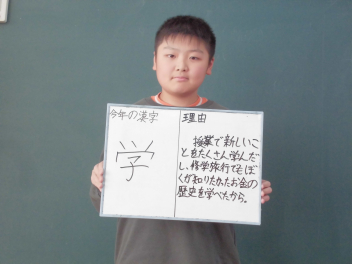 今年の漢字
学
理由
授業で新しいこ
とをたくさん学んだ
し、修学旅行でもぼ
くが知りたかったお金の
歴史を学べたから。